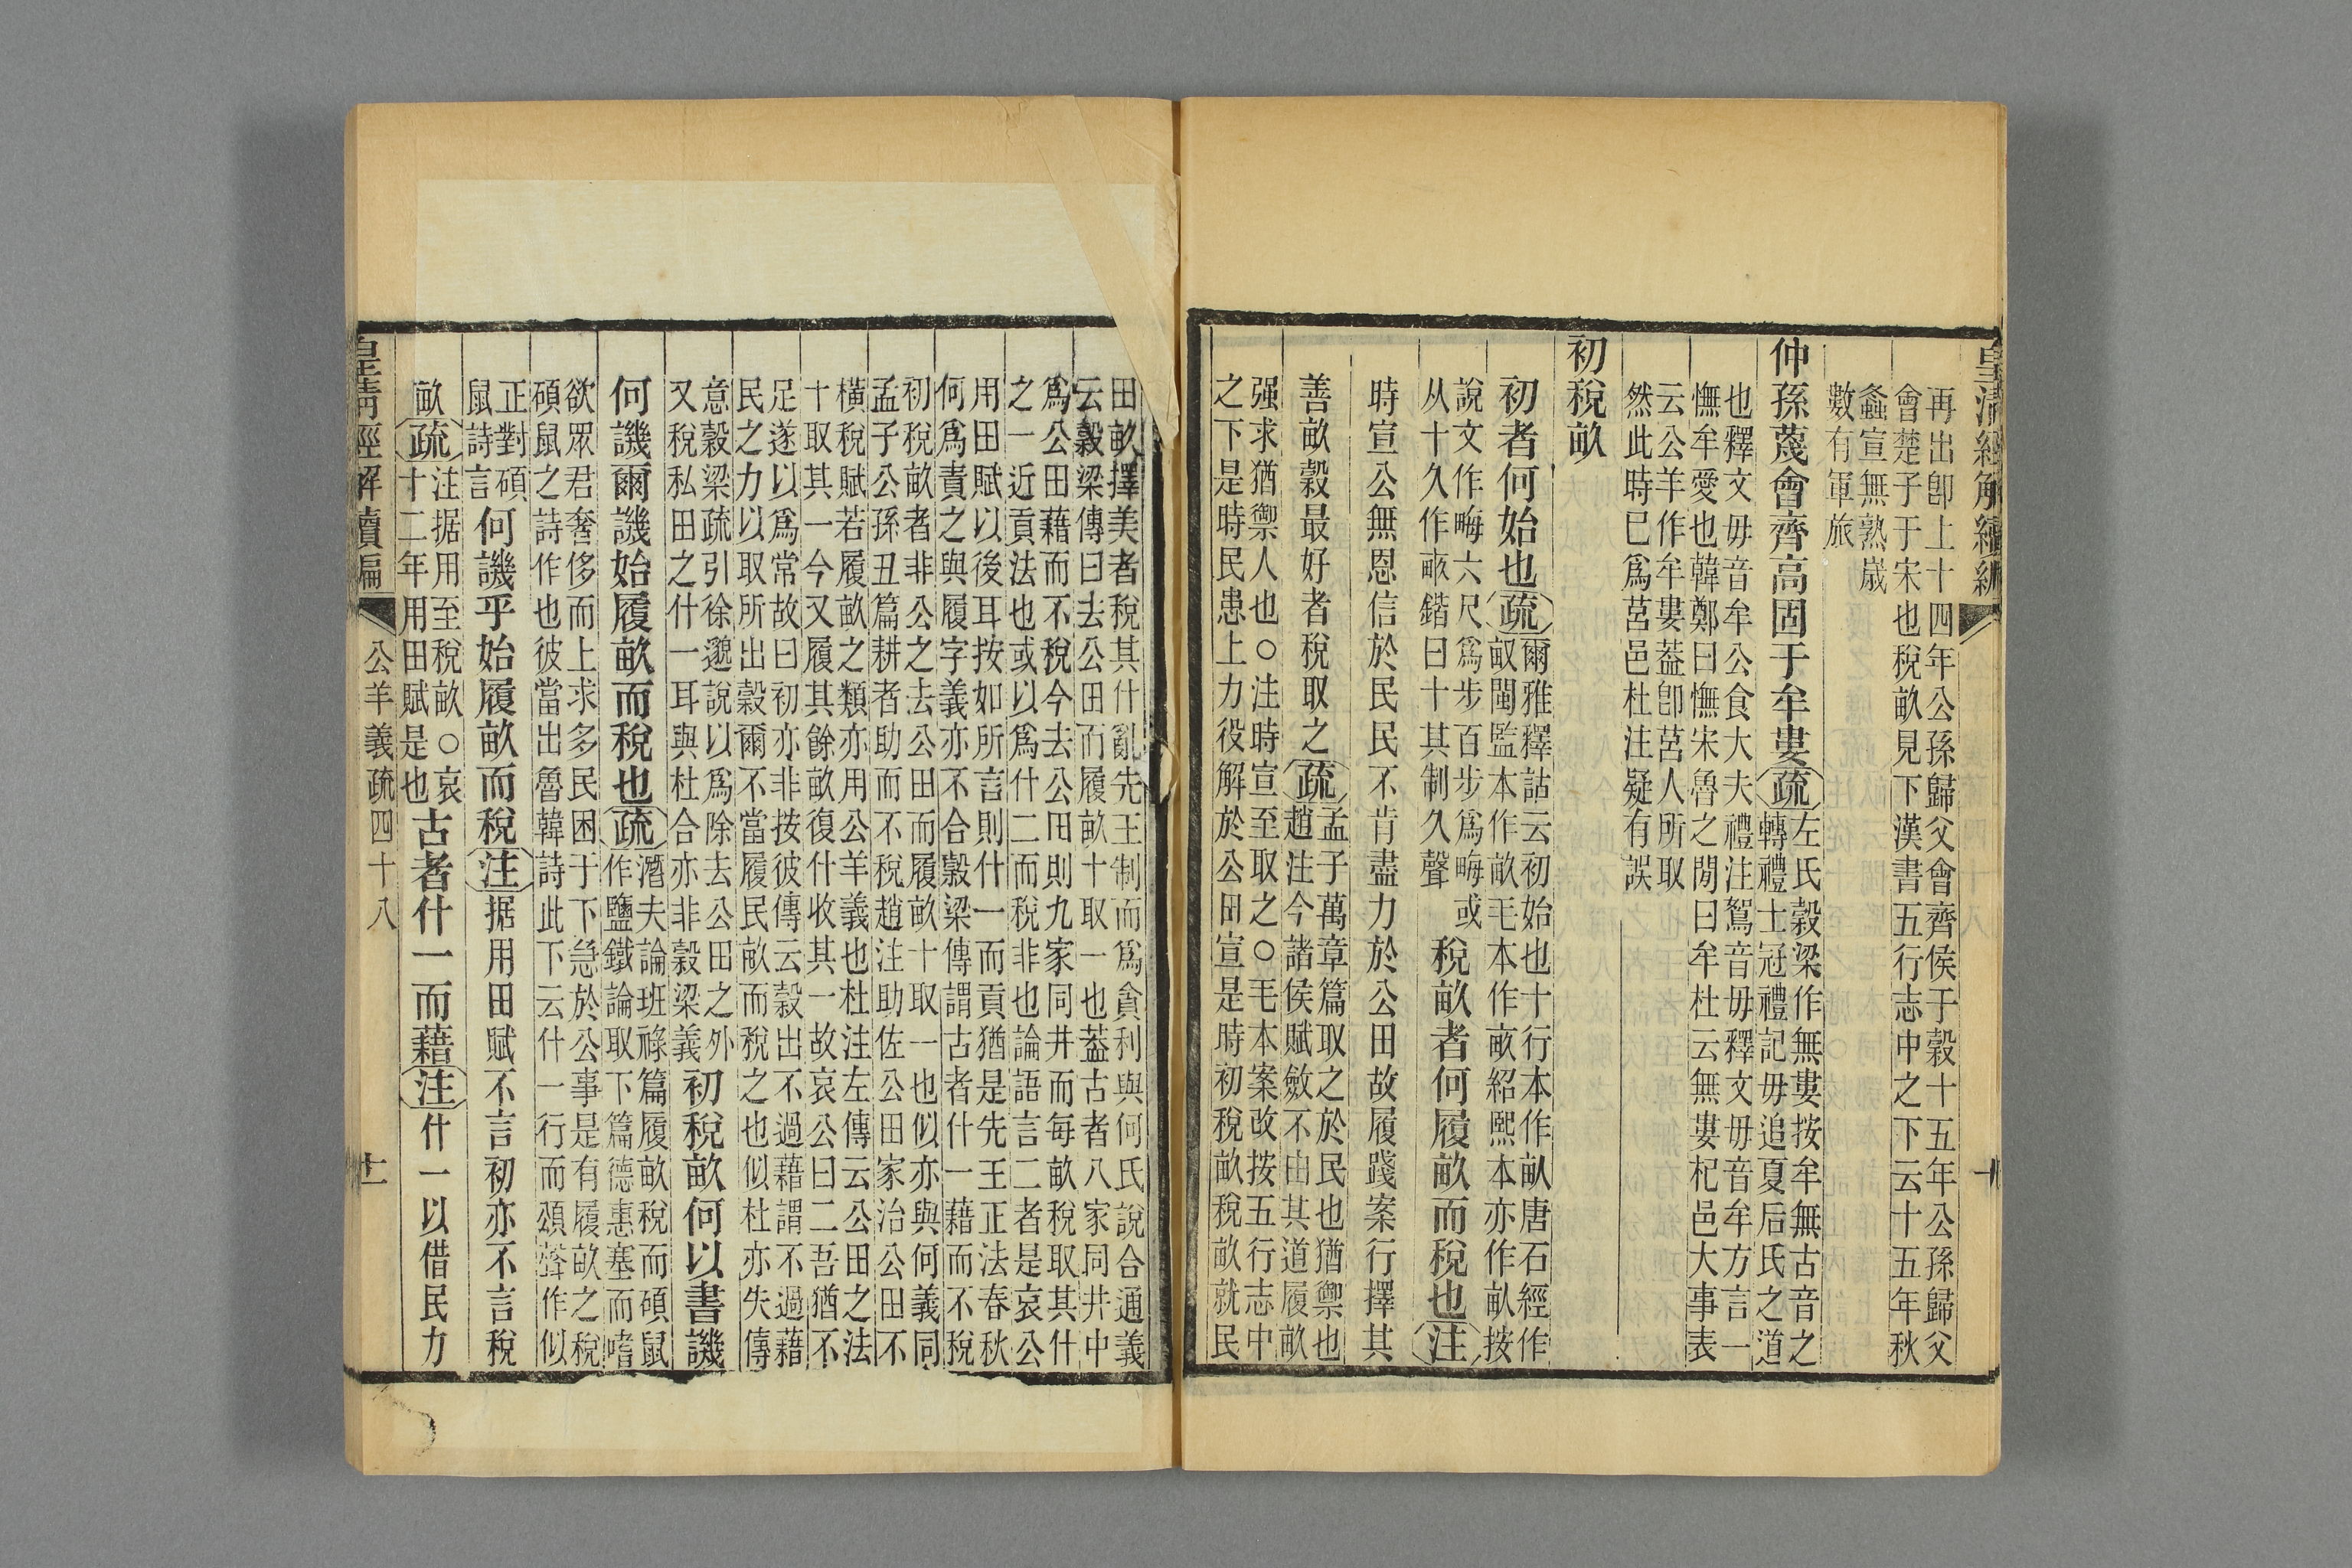 皇淸經解續編
十
再出卽上十四年公孫歸父會齊侯于穀十五年公孫歸父
會楚子于宋也稅畝見下漢書五行志中之下云十五年秋
螽宣無熟歲
數有軍旅
仲孫蔑會齊高固于牟婁疏左氏穀梁作無婁按牟無古音之
轉禮士冠禮記毋追夏后氏之道
也釋文毋音牟公食大夫禮注鴽音毋釋文毋音牟方言一
憮牟愛也韓鄭曰憮宋魯之閒曰牟杜云無婁杞邑大事表
云公羊作牟婁葢卽莒人所取
然此時巳爲莒邑杜注疑有誤
初稅畝
初者何始也疏爾雅釋詁云初始也十行本作畒唐石經作
畝閩監本作畝毛本作畞紹熙本亦作畝按
說文作晦六尺爲步百步爲晦或
从十久作畞鍇曰十其制久聲
稅畝者何履畝而稅也注
時宣公無恩信於民民不肯盡力於公田故履踐案行擇其
善畝穀最好者稅取之疏孟子萬章篇取之於民也猶禦也
趙注今諸侯賦斂不由其道履畝
强求猶禦人也○注時宣至取之○毛本案改按五行志中
之下是時民患上力役解於公田宣是時初稅畝稅畝就民
田畝擇美者稅其什亂先王制而爲貪利與何氏說合通義
云穀梁傳曰去公田而履畝十取一也葢古者八家同井中
爲公田藉而不稅今去公田則九家同井而每畝稅取其什
之一近貢法也或以爲什二而稅非也論語言二者是哀公
用田賦以後耳按如所言則什一而貢猶是先王正法春秋
何爲責之與履字義亦不合穀梁傳謂古者什一藉而不稅
初稅畝者非公之去公田而履畝十取一也似亦與何義同
孟子公孫丑篇耕者助而不稅趙注助佐公田家治公田不
橫稅賦若履畝之類亦用公羊義也杜注左傳云公田之法
十取其一今又履其餘畝復什收其一故哀公曰二吾猶不
足遂以爲常故曰初亦非按彼傳云穀出不過藉謂不過藉
民之力以取所出穀爾不當履民畝而稅之也似杜亦失傳
意穀梁疏引徐邈說以爲除去公田之外
又稅私田之什一耳與杜合亦非穀梁義
初稅畝何以書譏
何譏爾譏始履畝而稅也疏潛夫論班祿篇履畝稅而碩鼠
作鹽鐵論取下篇德惠塞而嗜
欲眾君奢侈而上求多民困于下怠於公事是有履畝之稅
碩鼠之詩作也彼當出魯韓詩此下云什一行而頌聲作似
正對碩
鼠詩言
何譏乎始履畝而稅注据用田賦不言初亦不言稅
畝疏注据用至稅畝○哀
十二年用田賦是也
古者什一而藉注什一以借民力
皇淸經解續編
公羊義疏四十八
十一